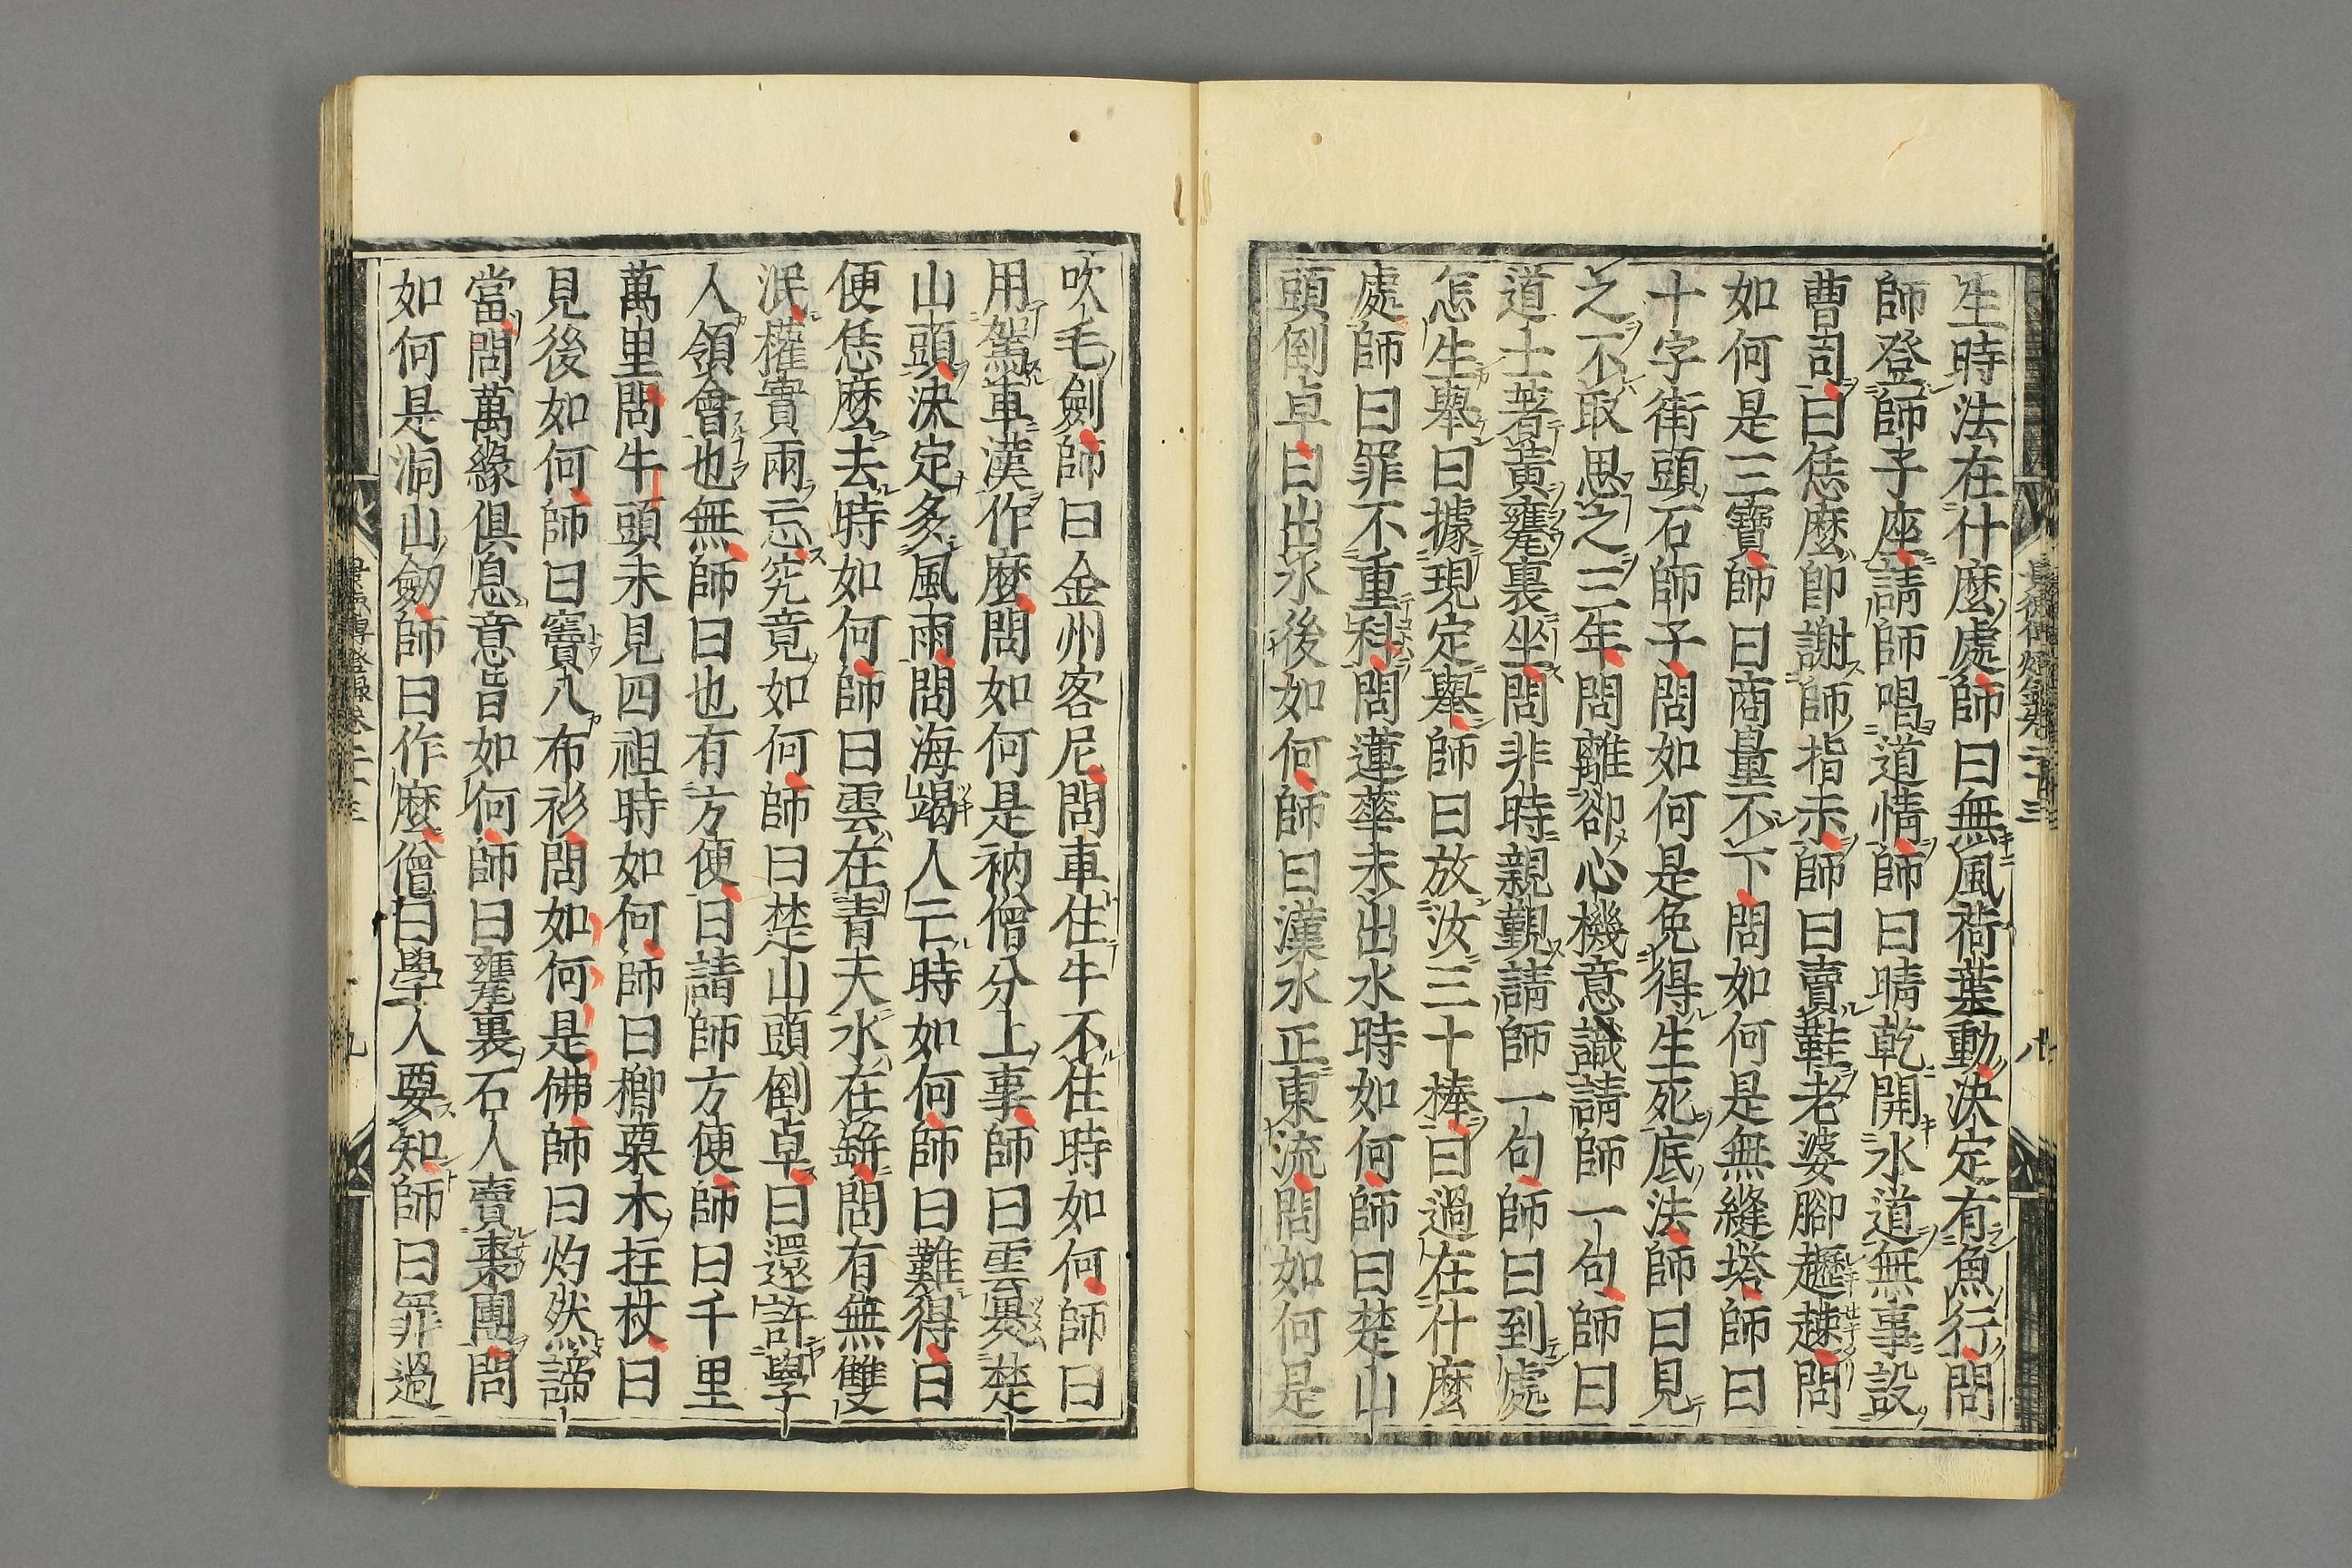 生時法在什麼處師曰無風荷葉動決定有魚行問
師登師子座請師唱道情師曰晴乾開水道無事設
曹司曰恁麼卽謝師指示師曰賣鞋老婆腳𨇽趚問
如何是三寶師曰商量不下問如何是無縫塔師曰
十字街頭石師子問如何是免得生死底法師曰見
之不取思之三年問離卻心機意識請師一句師曰
道士著黃甕裏坐問非時親覲請師一句師曰到處
怎生舉曰據現定舉師曰放汝三十棒曰過在什麼
處師曰罪不重科問蓮華未出水時如何師曰楚山
頭倒卓曰出水後如何師曰漢水正東流問如何是
吹毛劍師曰金州客尼問車住牛不住時如何師曰
用駕車漢作麼問如何是衲僧分上事師曰雲裏楚
山頭決定多風雨問海竭人亡時如何師曰難得曰
便恁麼去時如何師曰雲在青天水在缾問有無雙
泯權實兩忘究竟如何師曰楚山頭倒卓曰還許學
人領會也無師曰也有方便曰請師方便師曰千里
萬里問牛頭未見四祖時如何師曰楖栗木拄杖曰
見後如何師曰竇八布衫問如何是佛師曰灼然諦
當問萬緣俱息意旨如何師曰甕裏石人賣棗團問
如何是洞山劒師曰作麼僧曰學人要知師曰罪過
景德傳燈錄卷二十三
九